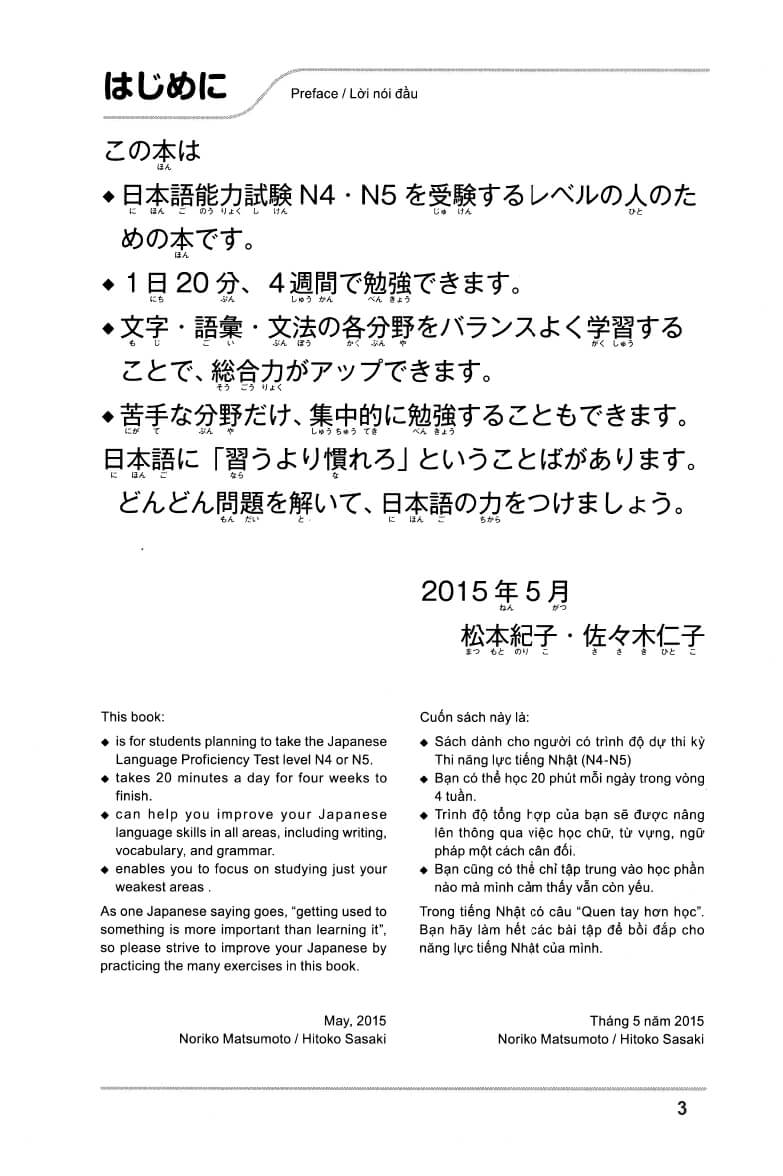 はじめに
Preface / Lời nói đầu
この本は
ほん
◆ 日本語能力試験 N4・N5 を受験するレベルの人のた
に ほん ご のう りょく し けん じゅ けん ひと
めの本です。
ほん
◆ 1日 20分、4週間で勉強できます。
にち ぷん しゅう かん べん きょう
◆ 文字・語彙・文法の各分野をバランスよく学習する
も じ ご い ぶん ぽう かく ぶん や がく しゅう
ことで、総合力がアップできます。
そう ごう りょく
◆ 苦手な分野だけ、集中的に勉強することもできます。
にが て ぶん や しゅう ちゅう てき べん きょう
日本語に「習うより慣れろ」ということばがあります。
に ほん ご なら な
どんどん問題を解いて、日本語の力をつけましょう。
もん だい と に ほん ご ちから
2015年5月
ねん がつ
松本紀子・佐々木仁子
まつ もと のり こ さ さ き ひと こ
This book:
◆ is for students planning to take the Japanese
Language Proficiency Test level N4 or N5.
◆ takes 20 minutes a day for four weeks to
finish.
◆ can help you improve your Japanese
language skills in all areas, including writing,
vocabulary, and grammar.
◆ enables you to focus on studying just your
weakest areas .
As one Japanese saying goes, “getting used to
something is more important than learning it”,
so please strive to improve your Japanese by
practicing the many exercises in this book.
May, 2015
Noriko Matsumoto / Hitoko Sasaki
Cuốn sách này là:
◆ Sách dành cho người có trình độ dự thi kỳ
Thi năng lực tiếng Nhật (N4-N5)
◆ Bạn có thể học 20 phút mỗi ngày trong vòng
4 tuần.
◆ Trình độ tổng hợp của bạn sẽ được nâng
lên thông qua việc học chữ, từ vựng, ngữ
pháp một cách cân đối.
◆ Bạn cũng có thể chỉ tập trung vào học phần
nào mà mình cảm thấy vẫn còn yếu.
Trong tiếng Nhật có câu “Quen tay hơn học”.
Bạn hãy làm hết các bài tập để bồi đắp cho
năng lực tiếng Nhật của mình.
Tháng 5 năm 2015
Noriko Matsumoto / Hitoko Sasaki
3